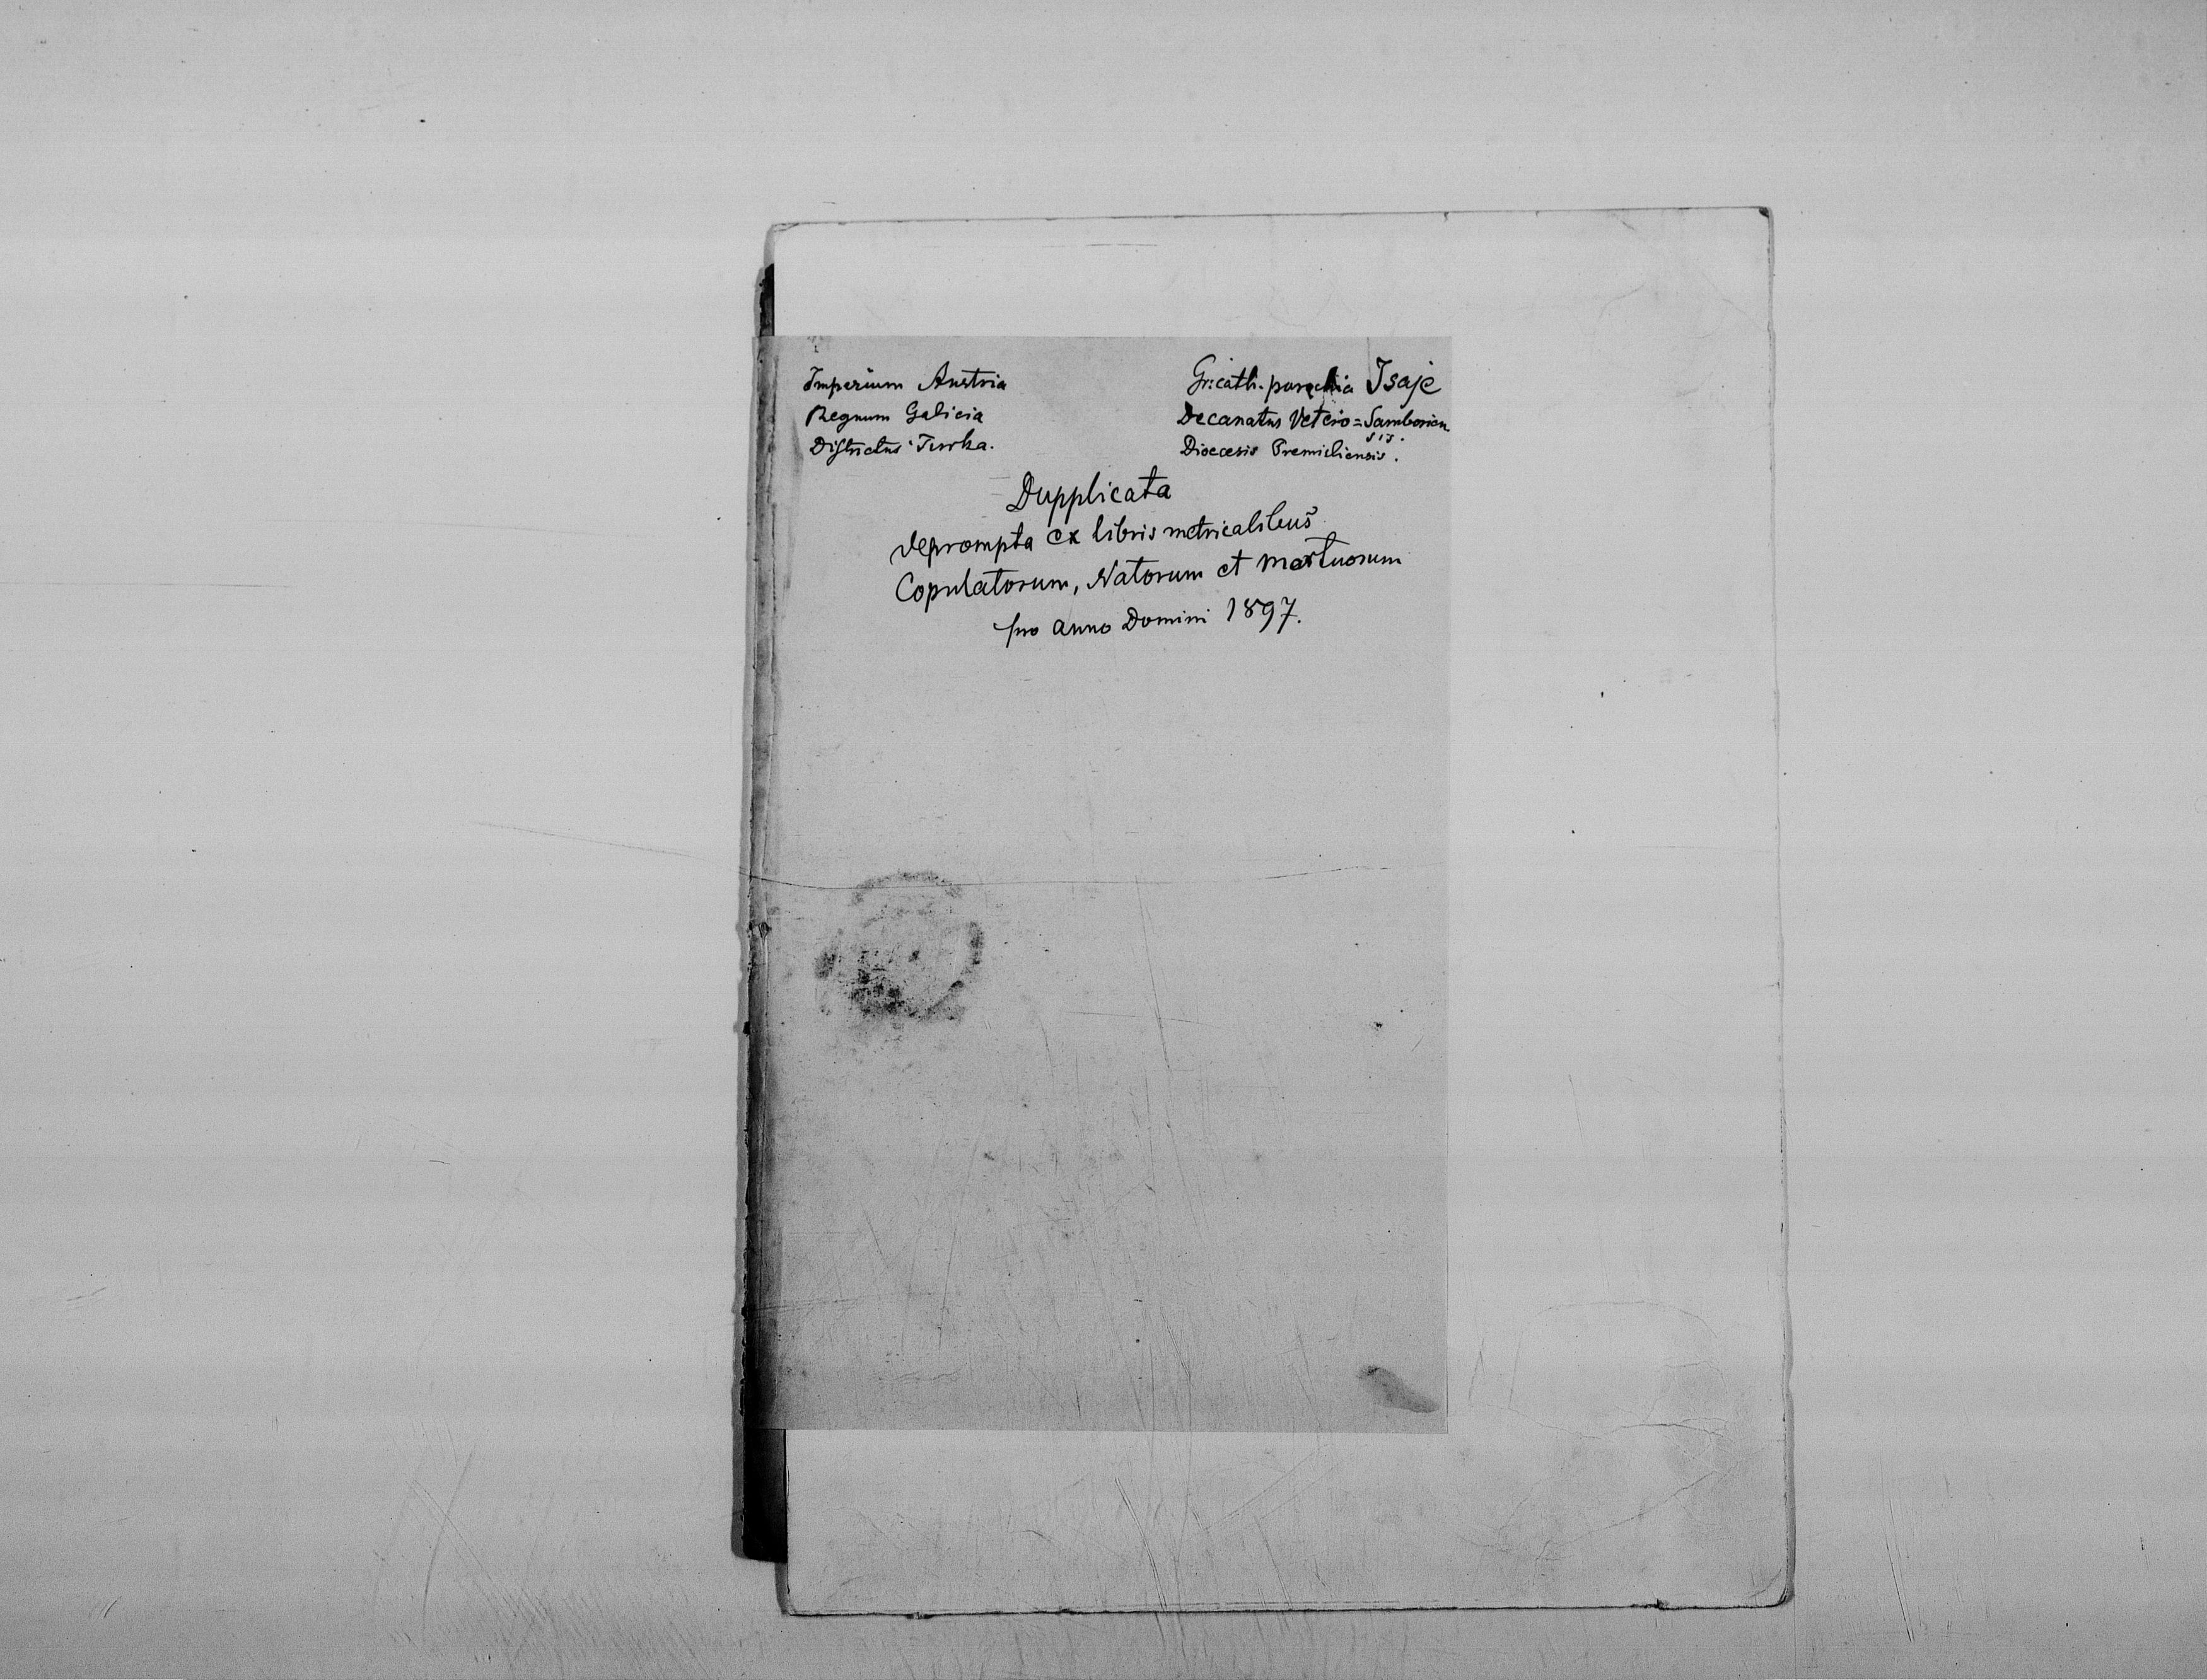 Imperium Austria
Regnum Galicia
Districtus Turka.
Gr: cath. parochia Isaje
Decanatus Vetero=Samborien
sis.
Dioecesis Premisliensis.
Dupplicata
deprompta ex libris metricalibus
Copulatorum, Natorum et Mortuorum
pro anno Domini 1897.